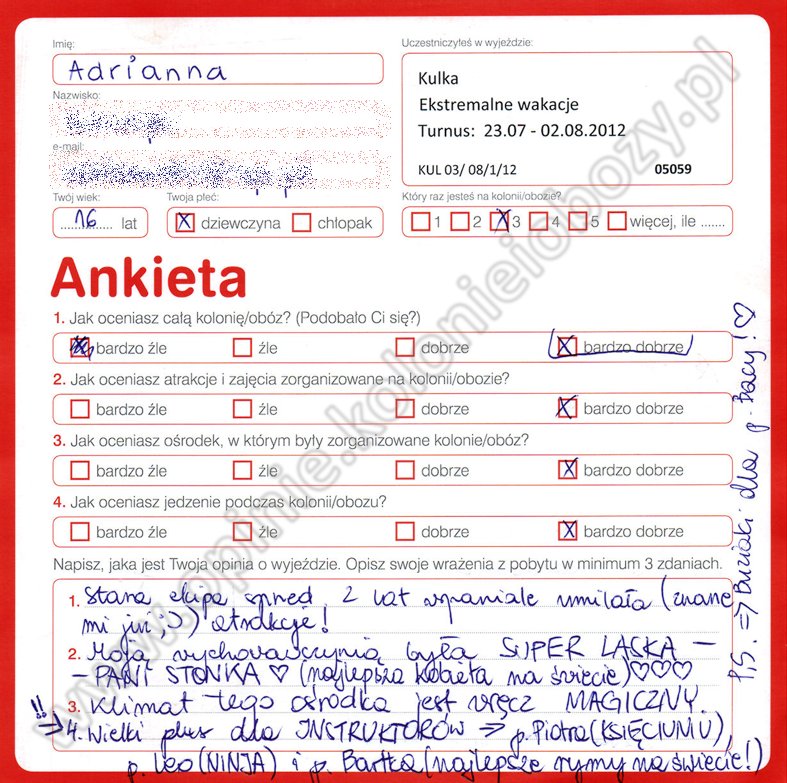 Imię:
Adrianna
Nazwisko:
e-mail:
Twój wiek:
16 lat
Twoja płeć:
X dziewczyna chłopak
Uczestniczyłeś w wyjeździe:
Kulka
Ekstremalne wakacje
Turnus: 23.07 - 02.08.2012
KUL 03/ 08/1/12 05059
Który raz jesteś na kolonii/obozie?
1 2 X 3 4 5 więcej, ile .......
Ankieta
1. Jak oceniasz całą kolonię/obóz? (Podobało Ci się?)
bardzo źle źle dobrze X bardzo dobrze
2. Jak oceniasz atrakcje i zajęcia zorganizowane na kolonii/obozie?
bardzo źle źle dobrze X bardzo dobrze
3. Jak oceniasz ośrodek, w którym były zorganizowane kolonie/obóz?
bardzo źle źle dobrze X bardzo dobrze
4. Jak oceniasz jedzenie podczas kolonii/obozu?
bardzo źle źle dobrze X bardzo dobrze
Napisz, jaka jest Twoja opinia o wyjeździe. Opisz swoje wrażenia z pobytu w minimum 3 zdaniach.
1. Stara ekipa sprzed 2 lat wspaniale umilała (znane
mi już ;)) atrakcje!
2. Moją wychowawczynią była SUPER LASKA -
- PANI STONKA ♡ (najlepsza kobieta na świecie) ♡♡♡
3. Klimat tego ośrodka jest wręcz MAGICZNY.
!! => 4. Wielki plus dla INSTRUKTORÓW => p. Piotra (KSIĘCIUNIU),
p. Leo (NINJA) i p. Bartka (najlepsze rymy na świecie!)
P.S. => Buziaki dla p. Gracy! ♡
www.opinie.kolonieiobozy.pl